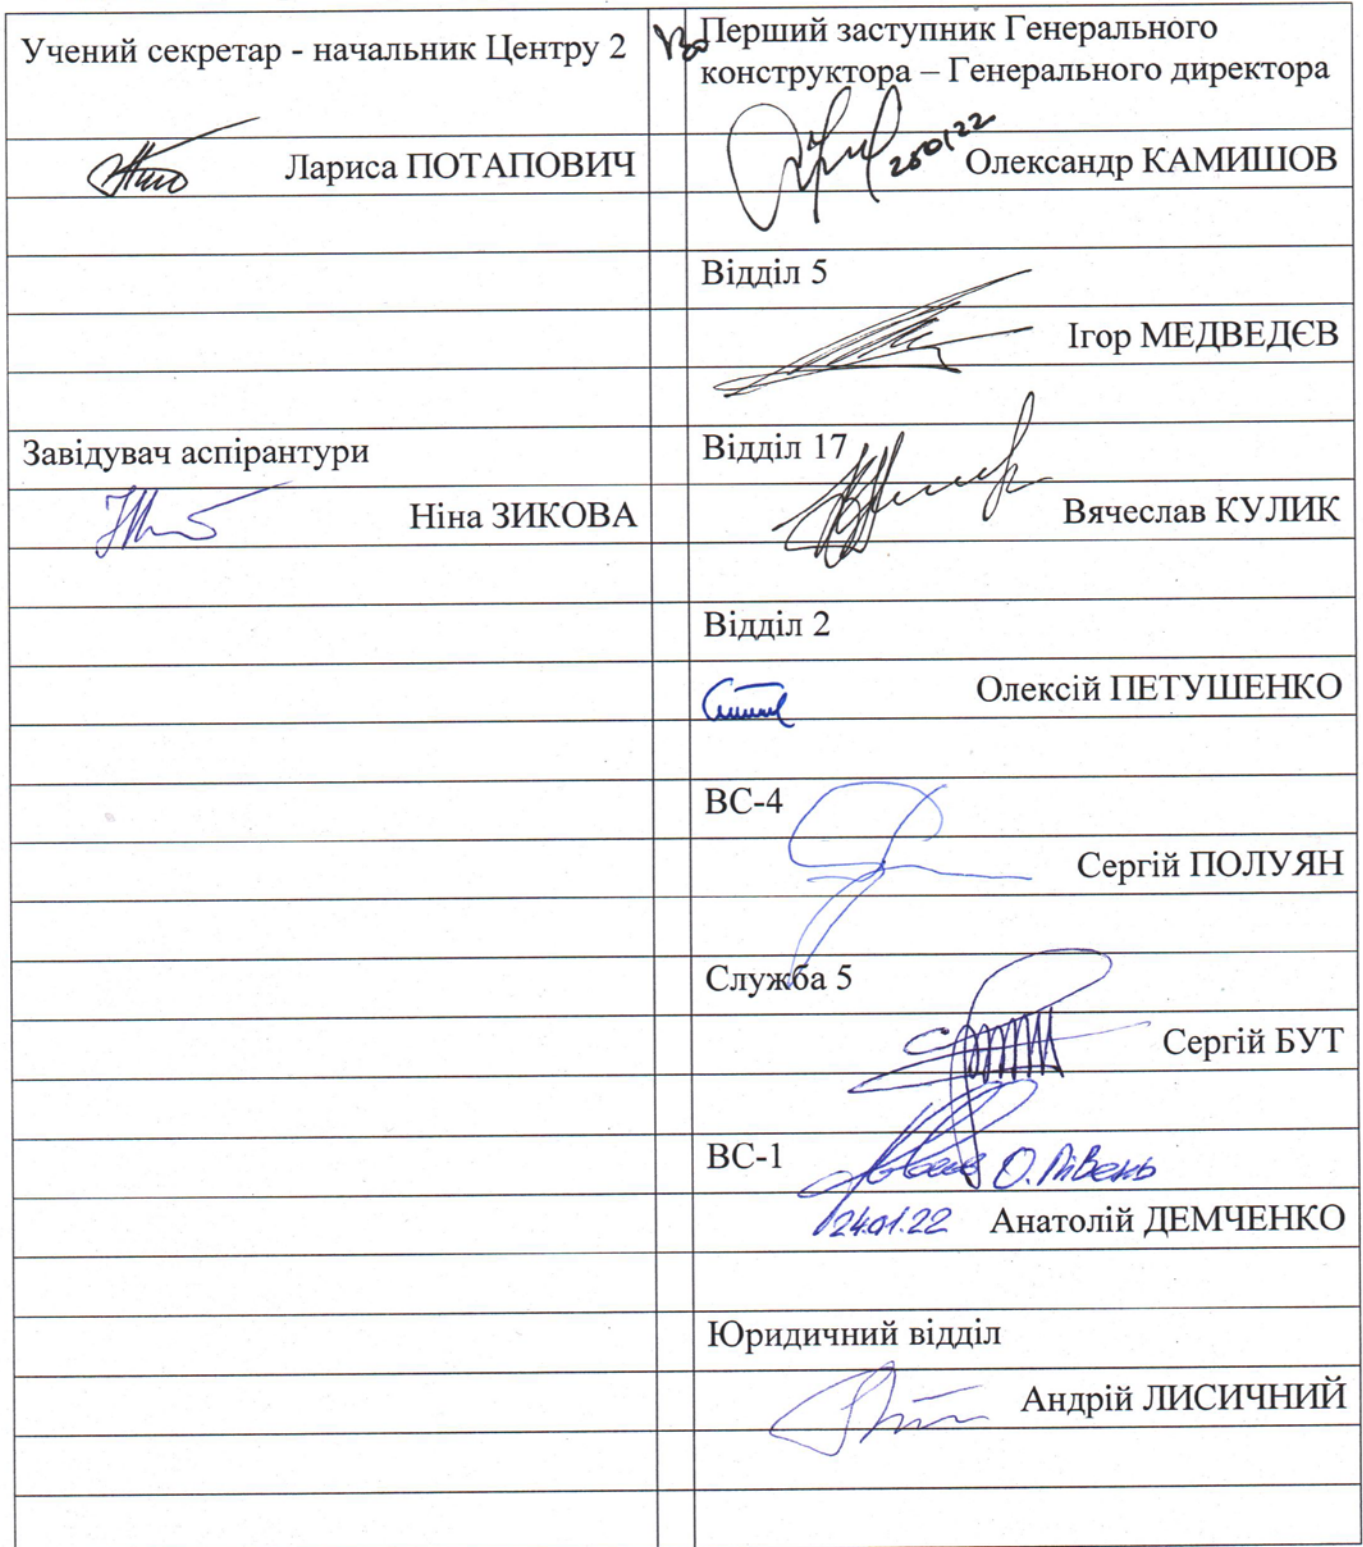 Учений секретар - начальник Центру 2
Лариса ПОТАПОВИЧ
Завідувач аспірантури
Ніна ЗИКОВА
Перший заступник Генерального
конструктора – Генерального директора
250122
Олександр КАМИШОВ
Відділ 5
Ігор МЕДВЕДЄВ
Відділ 17
Вячеслав КУЛИК
Відділ 2
Олексій ПЕТУШЕНКО
ВС-4
Сергій ПОЛУЯН
Служба 5
Сергій БУТ
ВС-1
О. Півень
24.01.22 Анатолій ДЕМЧЕНКО
Юридичний відділ
Андрій ЛИСИЧНИЙ